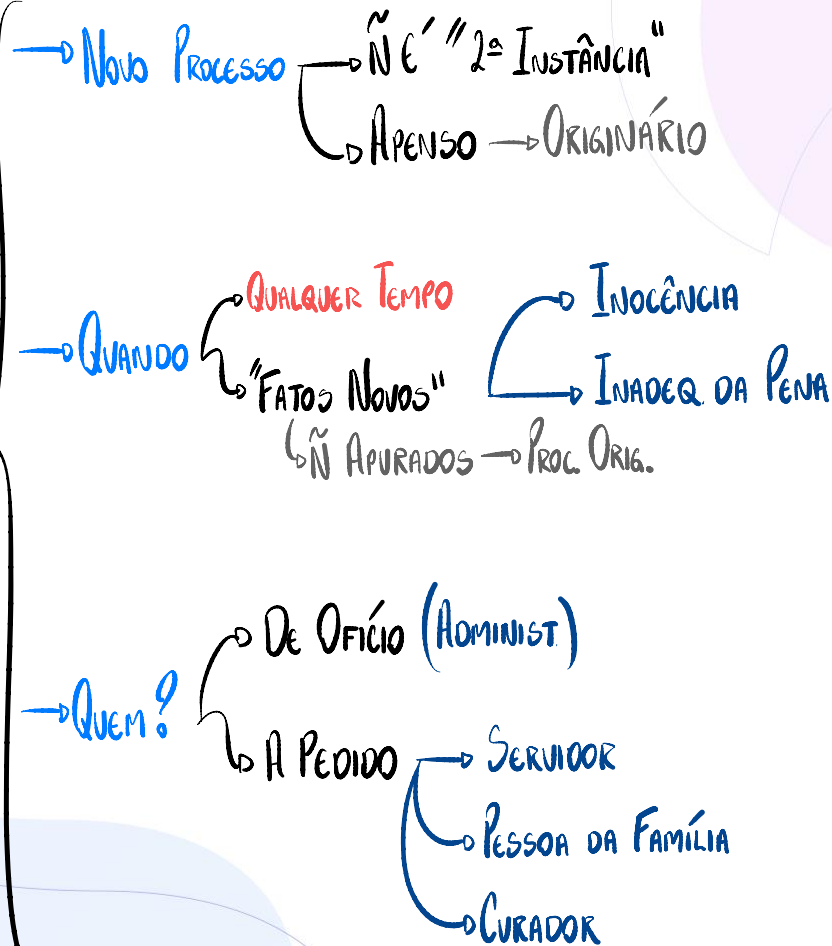 Novo Processo
Ñ É "2ª Instância"
Apenso → Originário
Quando
Qualquer Tempo
"Fatos Novos"
Ñ Apurados → Proc. Orig.
Inocência
Inadeq. da Pena
Quem?
De Ofício (Administ.)
A Pedido
Servidor
Pessoa da Família
Curador